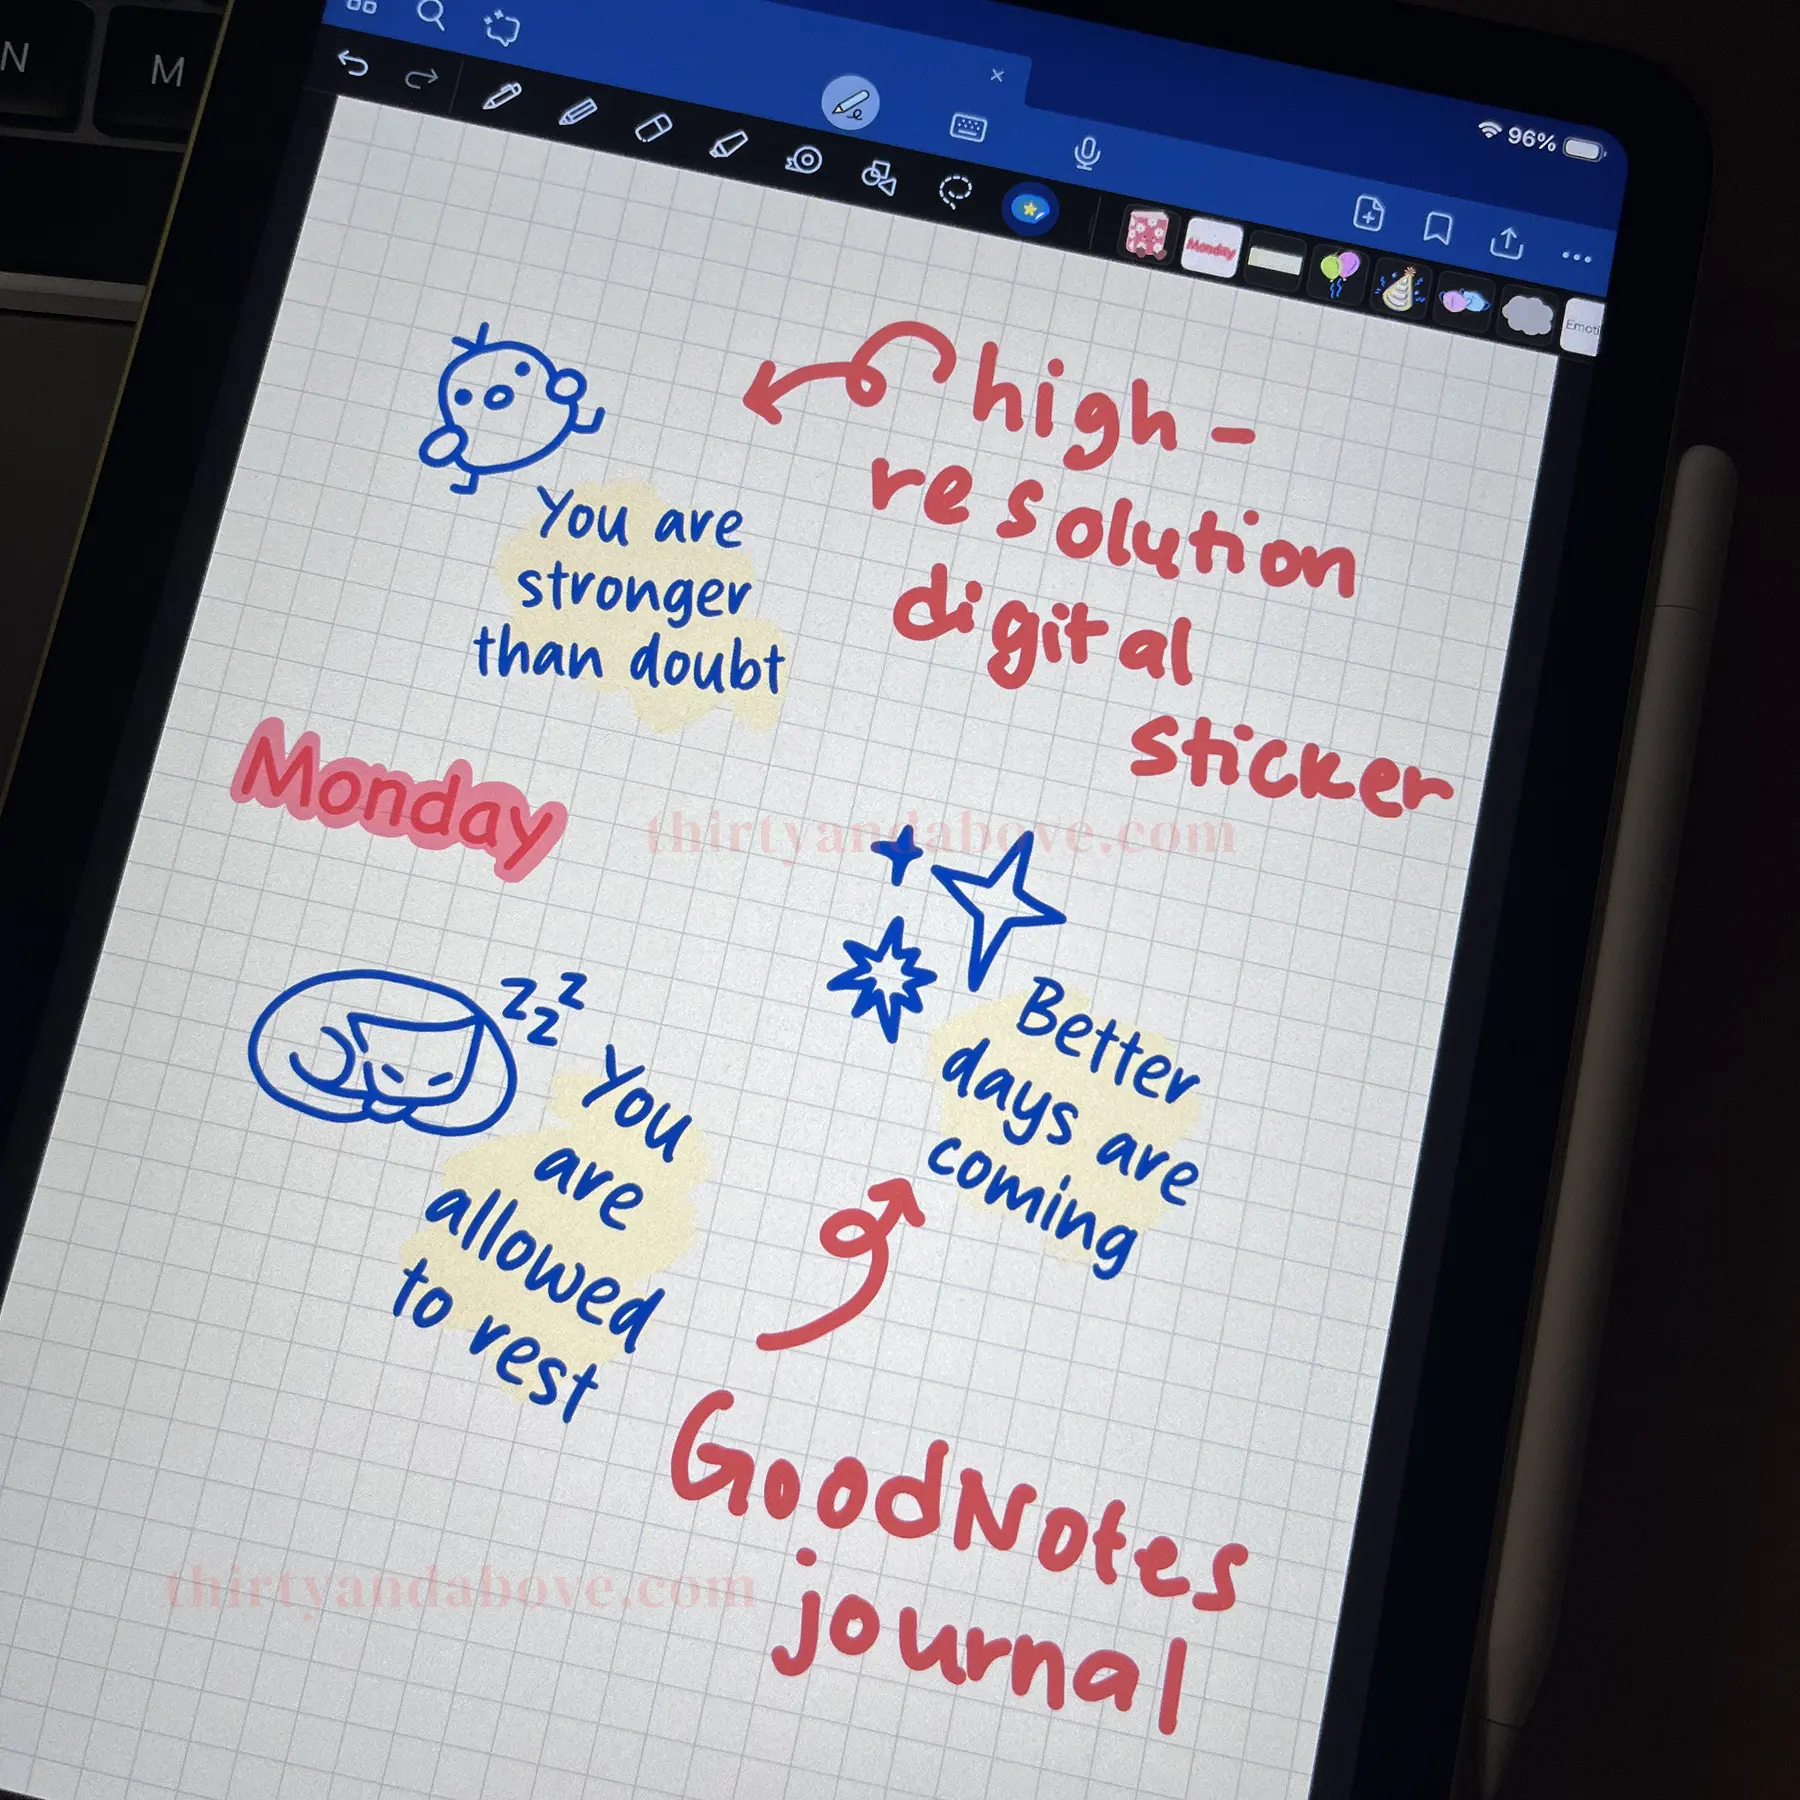 N
M
96%
Monday
Emoti
high-
resolution
digital
sticker
You are
stronger
than doubt
Monday
thirtyandabove.com
zzz
Better
days are
coming
You
are
allowed
to rest
GoodNotes
journal
thirtyandabove.com